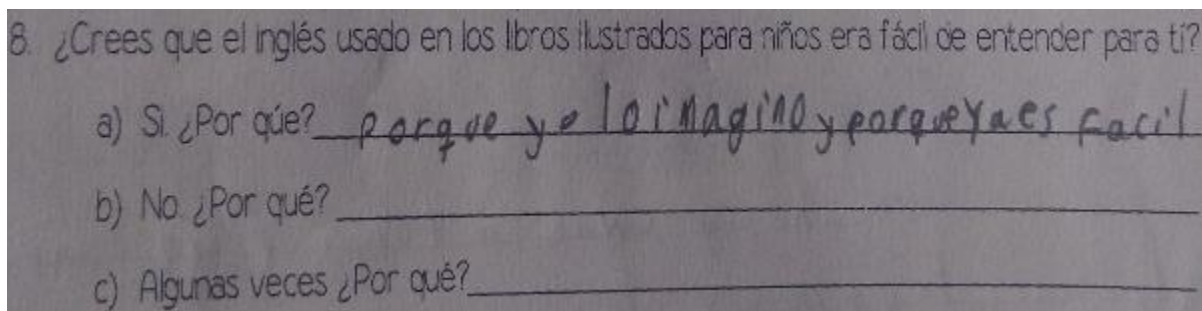 8. ¿Crees que el inglés usado en los libros ilustrados para niños era fácil de entender para tí?
a) Si. ¿Por qúe? porque yo lo imagino y porque ya es facil
b) No. ¿Por qué?
c) Algunas veces ¿Por qué?